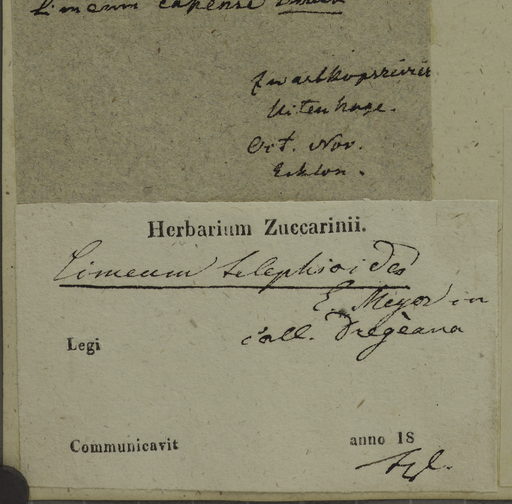 Limeum capense
Zwartkopsrivier
Uitenhage.
Oct. Nov.
Ecklon.
Herbarium Zuccarinii.
Limeum telephioides
E. Meyer in
coll. Drègeana
Legi
Communicavit anno 18